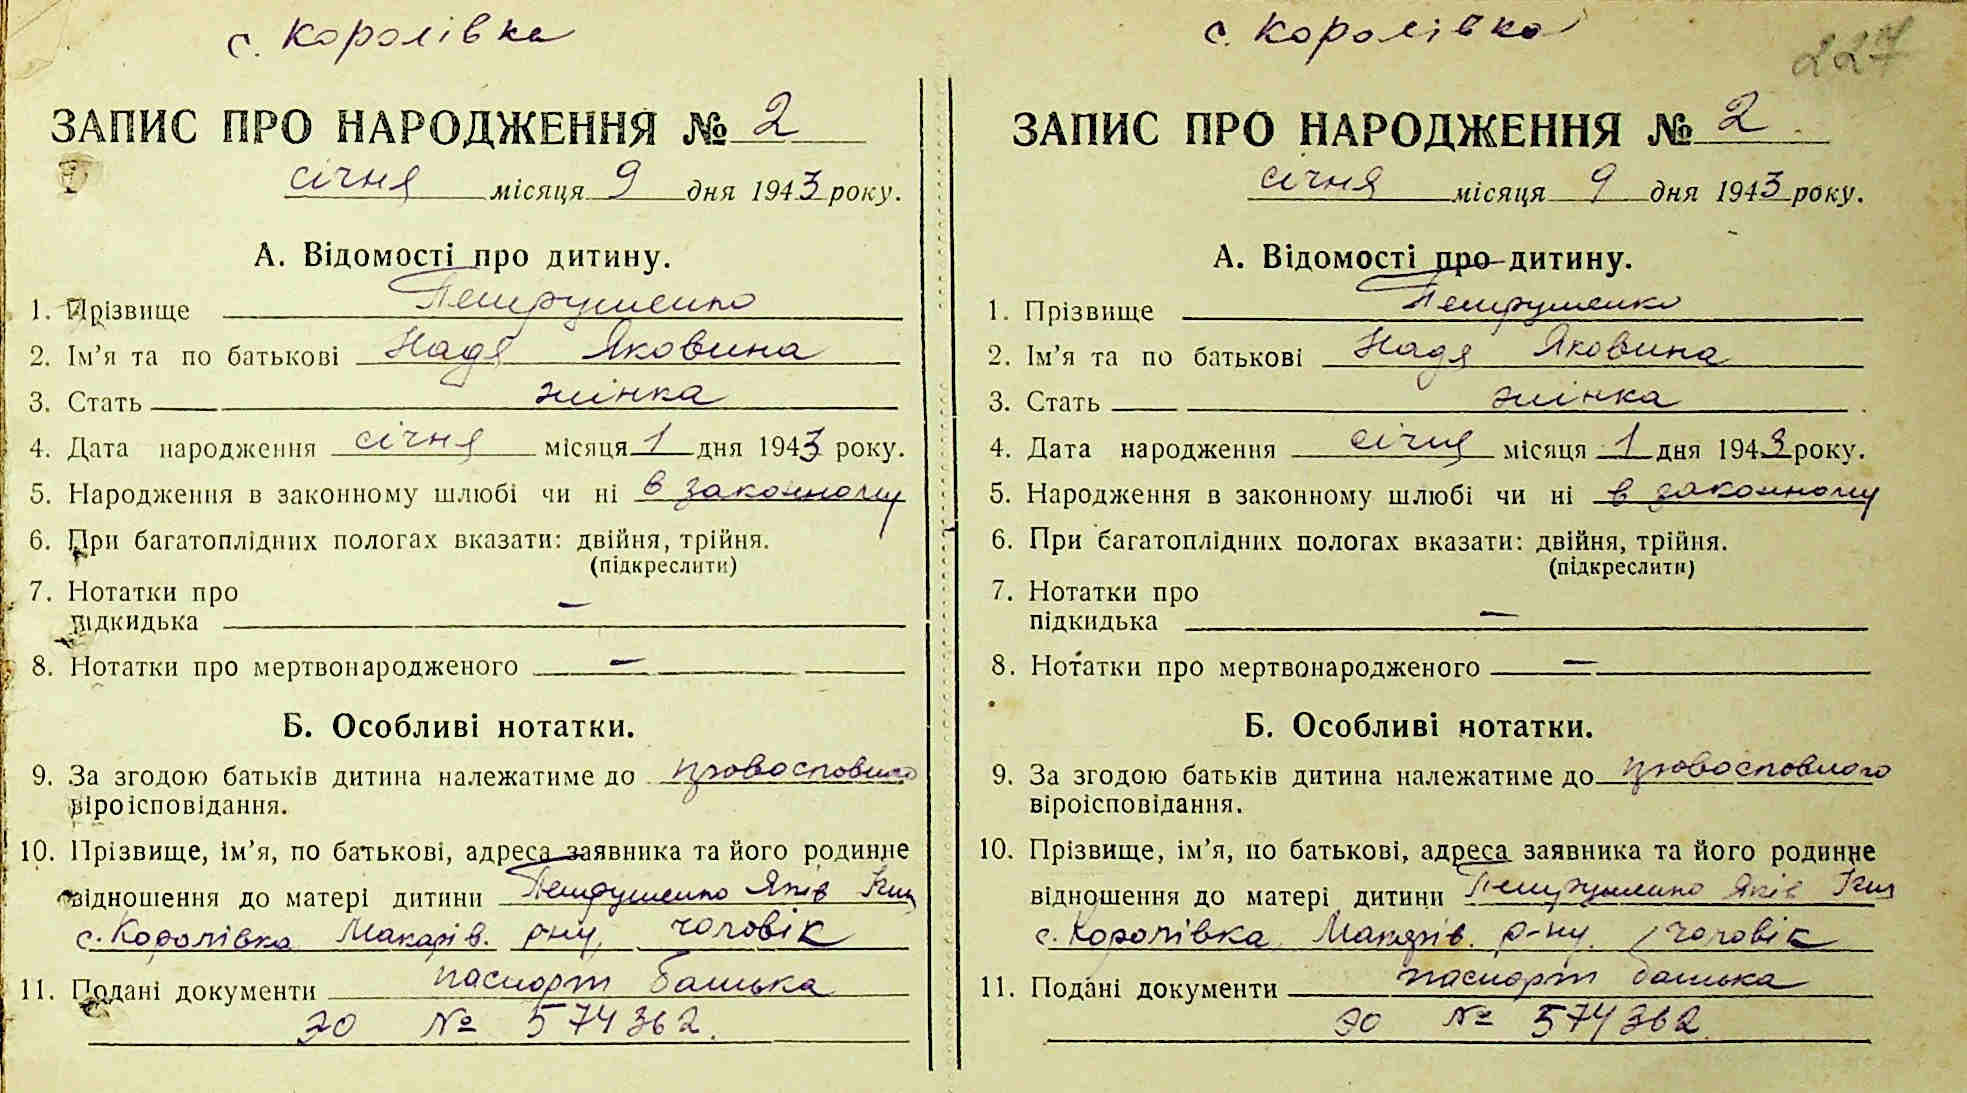 с. Королівка
ЗАПИС ПРО НАРОДЖЕННЯ № 2
січня місяця 9 дня 1943 року.
А. Відомості про дитину.
1. Прізвище Петрушенко
2. Ім’я та по батькові Надя Яковина
3. Стать жінка
4. Дата народження січня місяця 1 дня 1943 року.
5. Народження в законному шлюбі чи ні в законному
6. При багатоплідних пологах вказати: двійня, трійня.
(підкреслити)
7. Нотатки про
підкидька —
8. Нотатки про мертвонародженого —
Б. Особливі нотатки.
9. За згодою батьків дитина належатиме до провославного
віроісповідання.
10. Прізвище, ім’я, по батькові, адреса заявника та його родинне
відношення до матері дитини Петрушенко Яків
с. Королівка Макарів. р-ну, чоловік
11. Подані документи паспорт батька
ЭО № 574362.
с. Королівка
227
ЗАПИС ПРО НАРОДЖЕННЯ № 2.
січня місяця 9 дня 1943 року.
А. Відомості про дитину.
1. Прізвище Петрушенко
2. Ім’я та по батькові Надя Яковина
3. Стать жінка
4. Дата народження січня місяця 1 дня 1943 року.
5. Народження в законному шлюбі чи ні в законному
6. При багатоплідних пологах вказати: двійня, трійня.
(підкреслити)
7. Нотатки про
підкидька —
8. Нотатки про мертвонародженого —
Б. Особливі нотатки.
9. За згодою батьків дитина належатиме до провославного
віроісповідання.
10. Прізвище, ім’я, по батькові, адреса заявника та його родинне
відношення до матері дитини Петрушенко Яків
с. Королівка Макарів. р-ну. чоловік
11. Подані документи паспорт батька
ЭО № 574362.